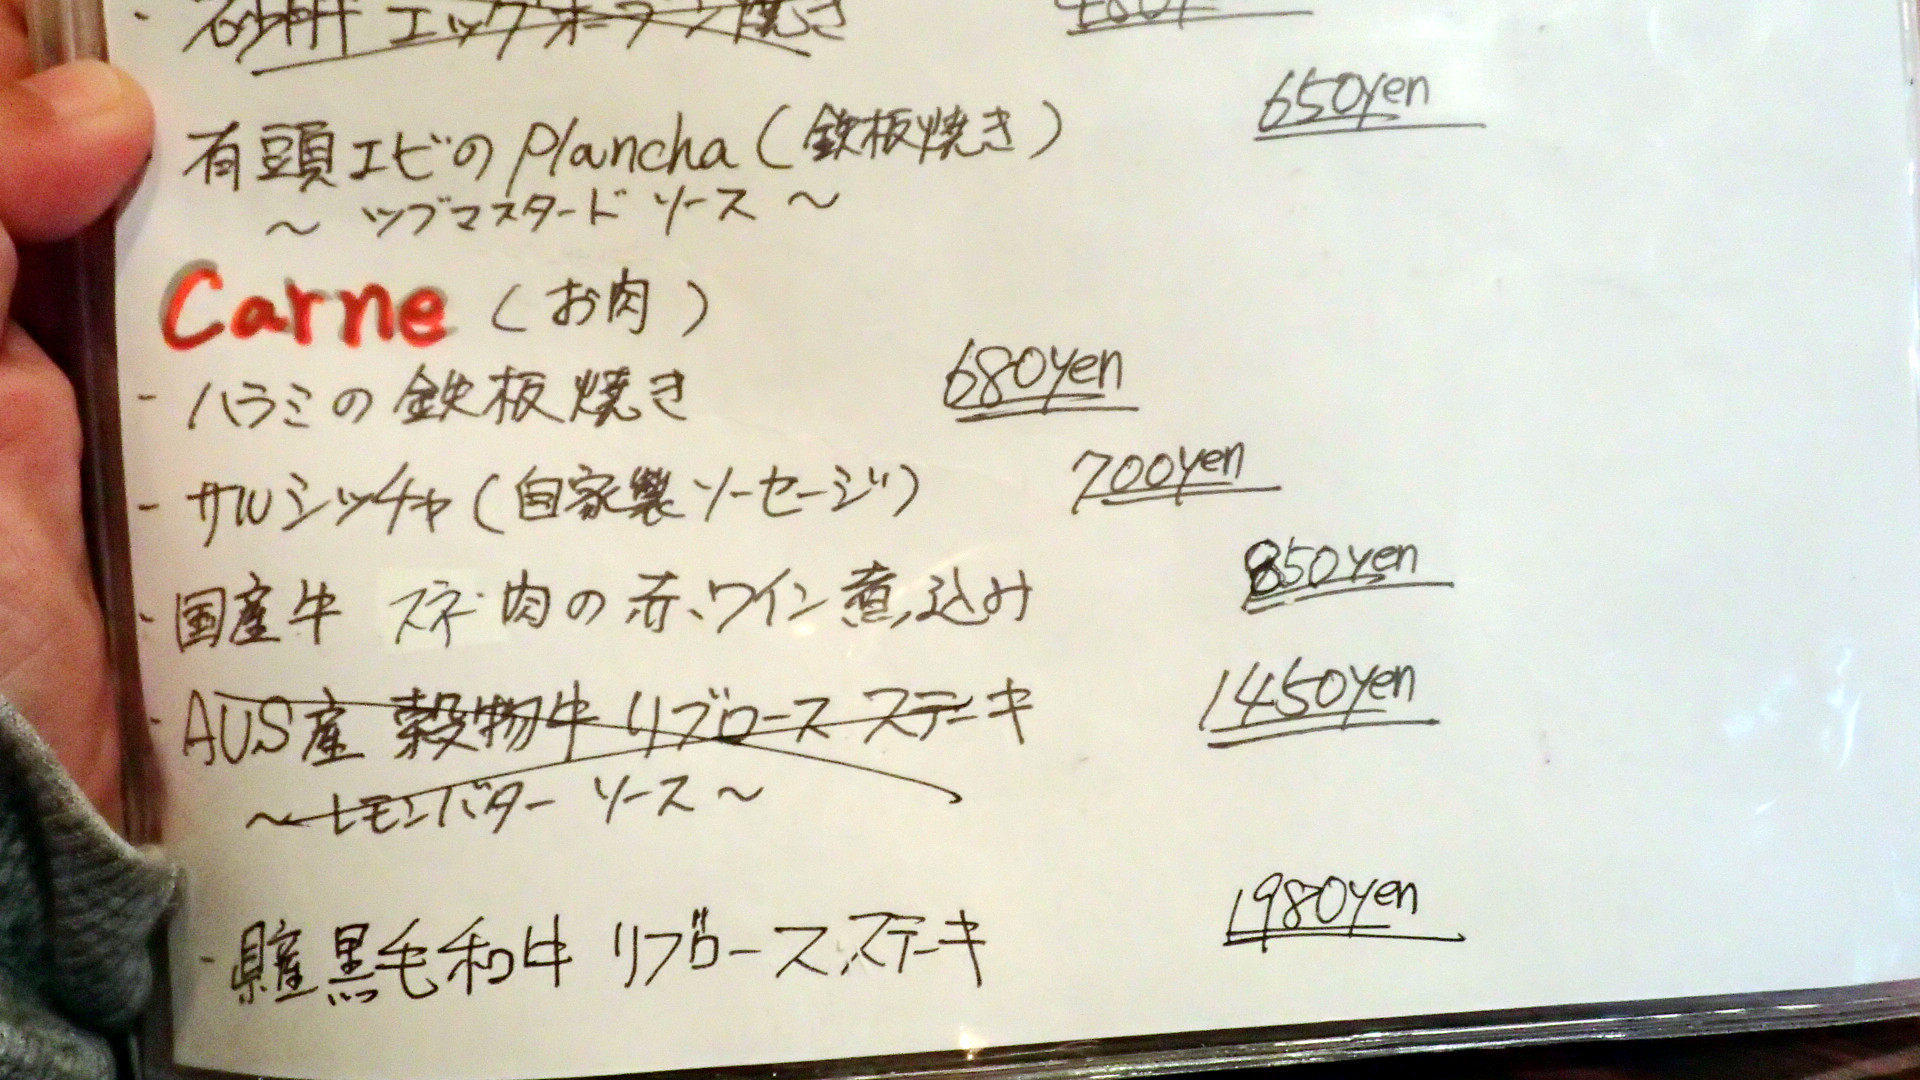 ・砂肝 エッグオーブン焼き 480yen
有頭エビの Plancha (鉄板焼き) 650yen
～ ツブマスタード ソース ～
Carne (お肉)
- ハラミの 鉄板焼き 680yen
- サルシッチャ (自家製ソーセージ) 700yen
- 国産牛 スネ肉の赤ワイン煮込み 850yen
- AUS産 穀物牛 リブロース ステーキ 1450yen
～レモンバター ソース～
- 県産黒毛和牛 リブロース ステーキ 1980yen